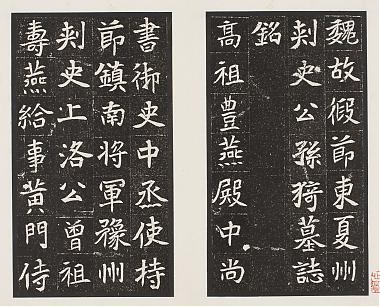 魏故假節東夏州
刺史公孫猗墓誌
銘
高祖豊燕殿中尚
書御史中丞使持
節鎮南将軍豫州
刺史上洛公曾祖
壽燕給事黄門侍